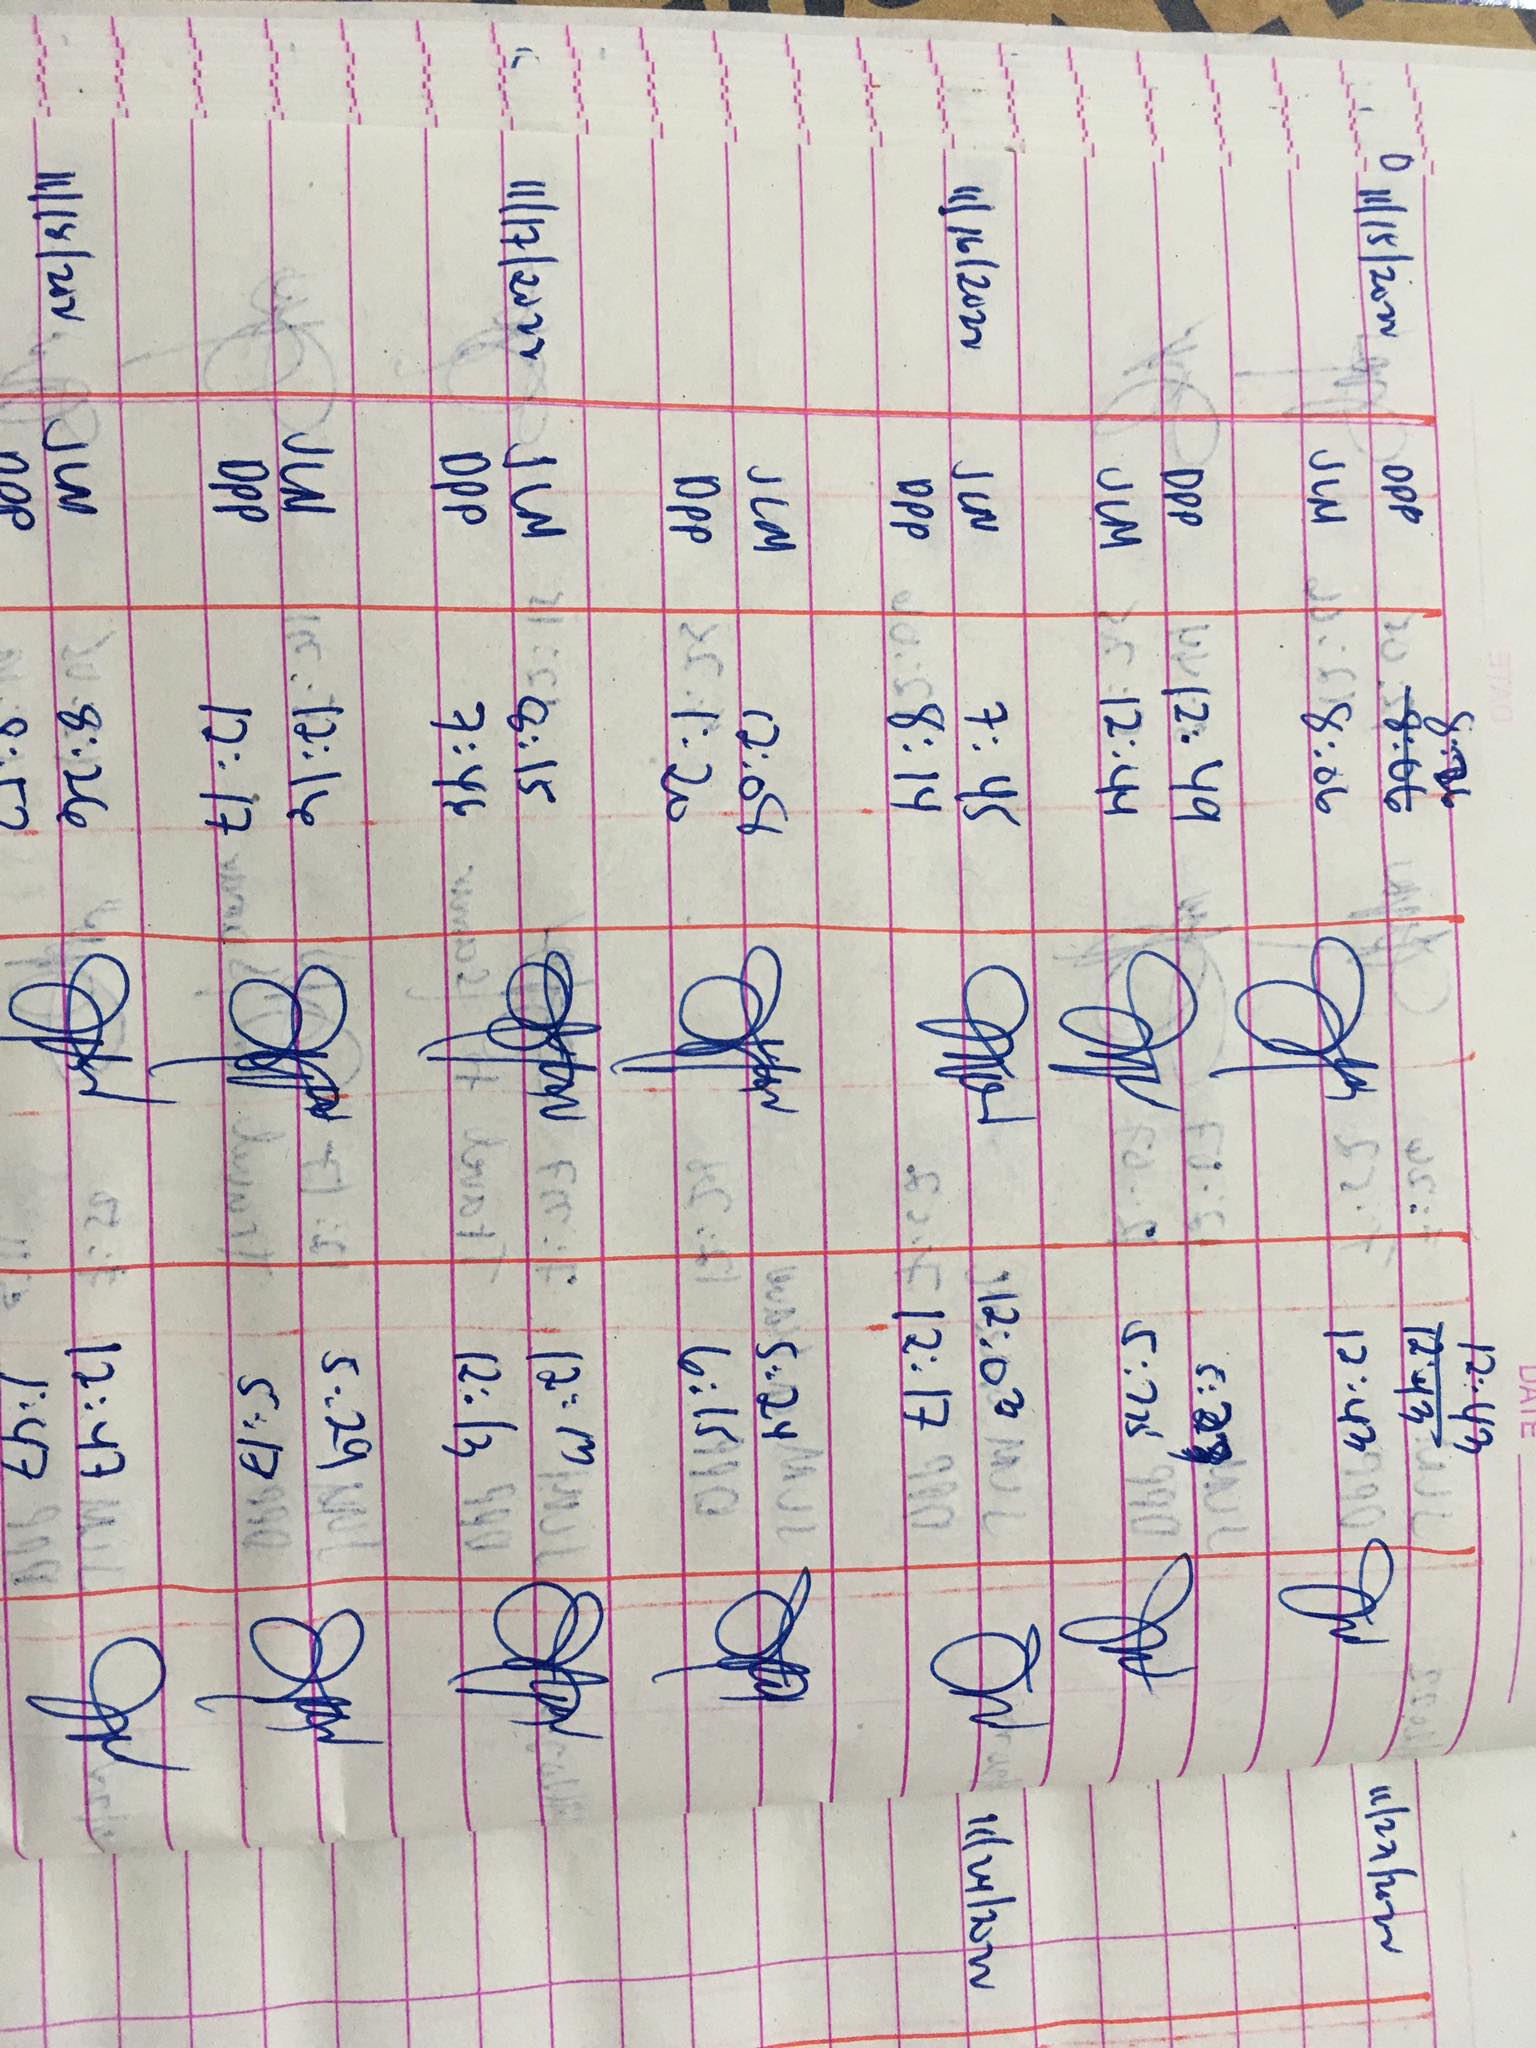 DATE
11/15/2022 OPP 8:02 12:43
8:06 12:43
JLM 8:06 12:43
OPP 12:49 5:28
JLM 12:44 5:25
11/16/2022 JLM 7:45 12:03
OPP 8:14 12:17
JLM 12:54 5:24
OPP 1:20 6:15
11/17/2022 JLM 8:15 12:13
OPP 7:46 12:13
JLM 12:16 5:29
OPP 12:17 5:17
11/18/2022 JLM 8:26 12:47
OPP 8:57 1:47
11/22/2022
11/24/2022